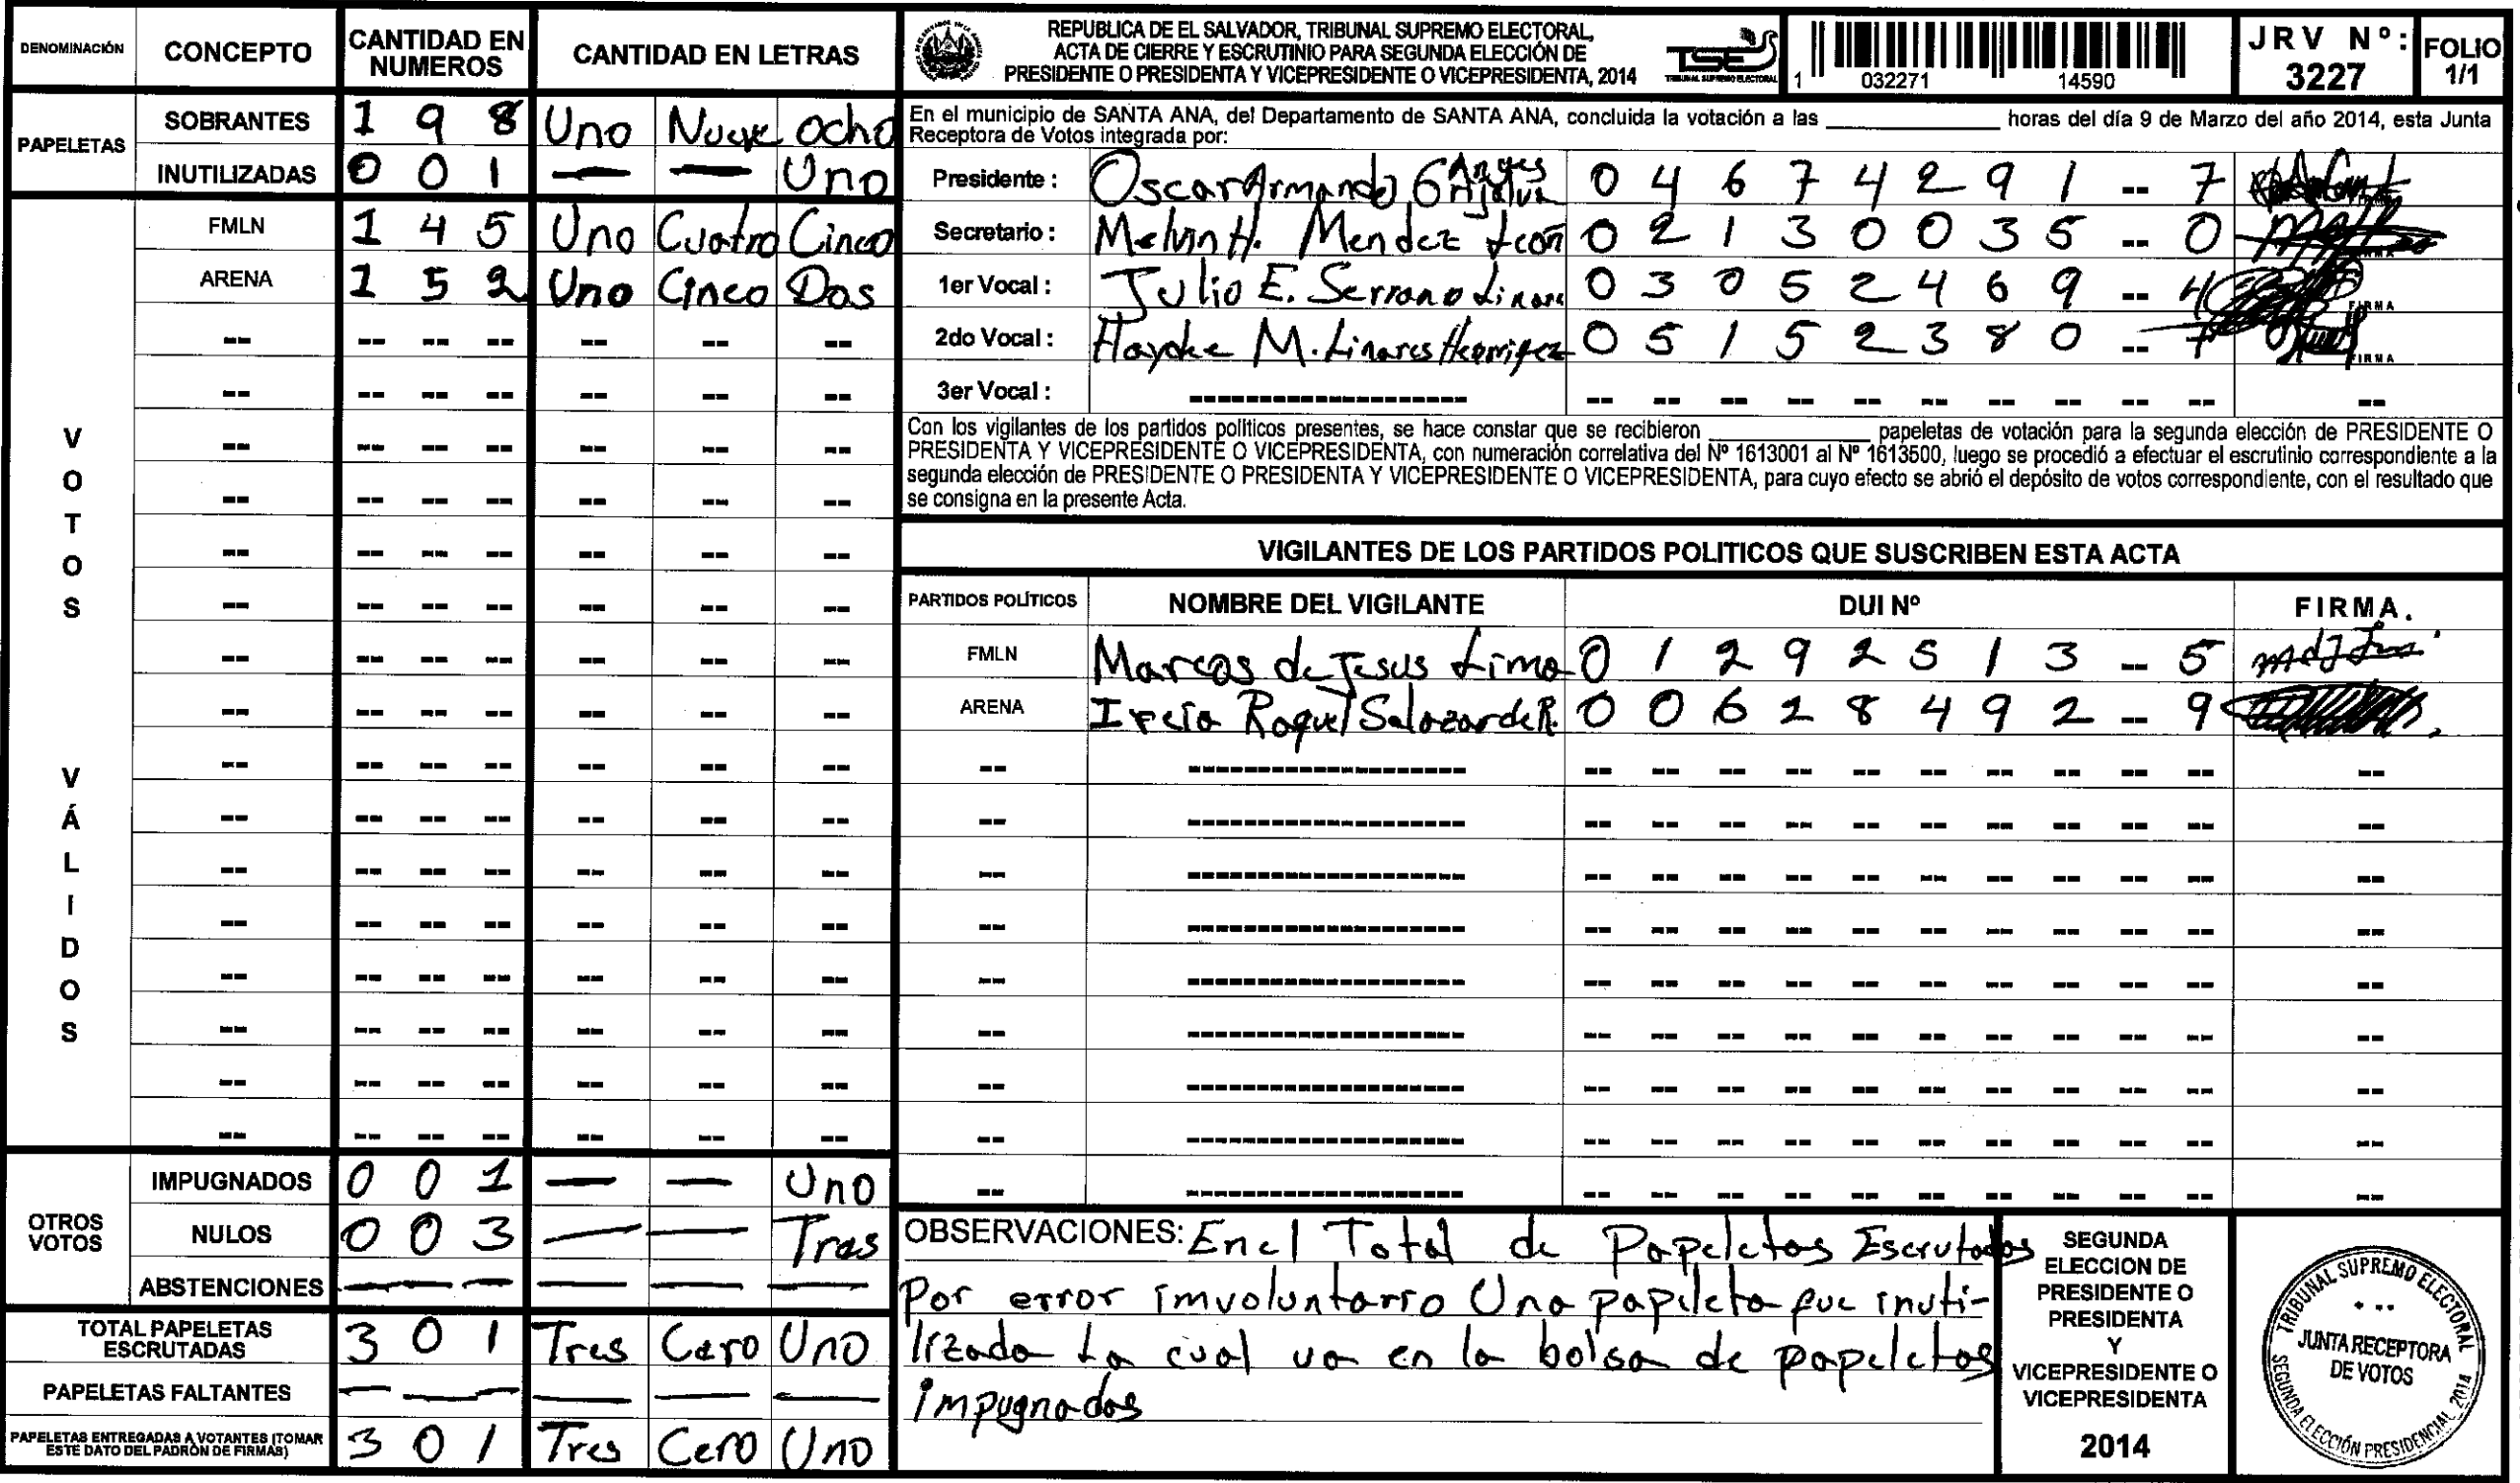 DENOMINACIÓN CONCEPTO CANTIDAD EN NUMEROS CANTIDAD EN LETRAS
PAPELETAS
SOBRANTES 1 9 8 Uno Nueve Ocho
INUTILIZADAS 0 0 1 — — Uno
VOTOS VÁLIDOS
FMLN 1 4 5 Uno Cuatro Cinco
ARENA 1 5 2 Uno Cinco Dos
OTROS VOTOS
IMPUGNADOS 0 0 1 — — Uno
NULOS 0 0 3 — — Tres
ABSTENCIONES — — — — — —
TOTAL PAPELETAS ESCRUTADAS 3 0 1 Tres Cero Uno
PAPELETAS FALTANTES — — — — — —
PAPELETAS ENTREGADAS A VOTANTES (TOMAR ESTE DATO DEL PADRÓN DE FIRMAS) 3 0 1 Tres Cero Uno
REPUBLICA DE EL SALVADOR, TRIBUNAL SUPREMO ELECTORAL,
ACTA DE CIERRE Y ESCRUTINIO PARA SEGUNDA ELECCIÓN DE
PRESIDENTE O PRESIDENTA Y VICEPRESIDENTE O VICEPRESIDENTA, 2014
TSE
TRIBUNAL SUPREMO ELECTORAL
1 032271 14590
JRV Nº: 3227
FOLIO 1/1
En el municipio de SANTA ANA, del Departamento de SANTA ANA, concluida la votación a las ____ horas del día 9 de Marzo del año 2014, esta Junta
Receptora de Votos integrada por:
Presidente : Oscar Armando Grijalva 0 4 6 7 4 2 9 1 -- 7
Secretario : Melvin H. Mendez León 0 2 1 3 0 0 3 5 -- 0
1er Vocal : Julio E. Serrano Linare 0 3 0 5 2 4 6 9 -- 4 FIRMA
2do Vocal : Haydee M. Linares 0 5 1 5 2 3 8 0 -- 7 FIRMA
3er Vocal :
Con los vigilantes de los partidos políticos presentes, se hace constar que se recibieron ____ papeletas de votación para la segunda elección de PRESIDENTE O
PRESIDENTA Y VICEPRESIDENTE O VICEPRESIDENTA, con numeración correlativa del Nº 1613001 al Nº 1613500, luego se procedió a efectuar el escrutinio correspondiente a la
segunda elección de PRESIDENTE O PRESIDENTA Y VICEPRESIDENTE O VICEPRESIDENTA, para cuyo efecto se abrió el depósito de votos correspondiente, con el resultado que
se consigna en la presente Acta.
VIGILANTES DE LOS PARTIDOS POLITICOS QUE SUSCRIBEN ESTA ACTA
PARTIDOS POLÍTICOS NOMBRE DEL VIGILANTE DUI Nº FIRMA.
FMLN Marcos de Jesus Lima 0 1 2 9 2 5 1 3 -- 5
ARENA Raquel Salazar de R. 0 0 6 2 8 4 9 2 -- 9
OBSERVACIONES: En el Total de Papeletas Escrutadas
Por error imvoluntario Una papeleta fue inuti-
lizada La cual va en la bolsa de papeletas
impugnadas
SEGUNDA
ELECCION DE
PRESIDENTE O
PRESIDENTA
Y
VICEPRESIDENTE O
VICEPRESIDENTA
2014
TRIBUNAL SUPREMO ELECTORAL
JUNTA RECEPTORA
DE VOTOS
SEGUNDA ELECCIÓN PRESIDENCIAL 2014